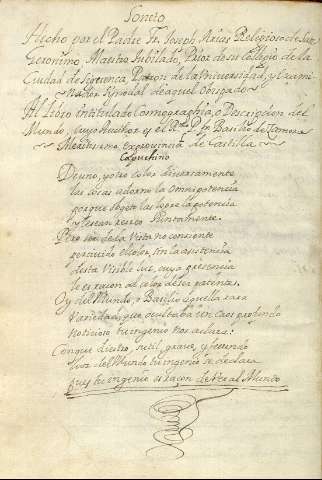 Soneto
Hecho por el Padre Fr. Joseph Arias Religioso de San
Geronimo, Maestro Jubilado, Prior de su Collegio de la
Ciudad de Siguenza Patron de la Universidad, y Exami-
nador Synodal de aquel Obispado
Al Libro intitulado Cosmographia, o Descripcion del
Mundo, cuyo Author es el Rmo. P. Fr. Basilio de Zamora
Meritissimo exprovincial de Castilla
Capuchino
De uno, y otro color diversamente
las cosas adorno la Omnipotencia
porque objeto las logre la potencia
Pero ser de la Vista no consiente
percivido el color, sin la asistencia
desta Visible luz, cuya presencia
es razon al color de ser patente.
Oy del Mundo, o Basilio aquella rara
Variedad, que ocultaba un caos profundo
Noticioso tu ingenio nos aclara:
Conque diestro, sutil, grave, y fecundo
luz del Mundo tu ingenio se declara
pues tu ingenio es razon de Ver al Mundo